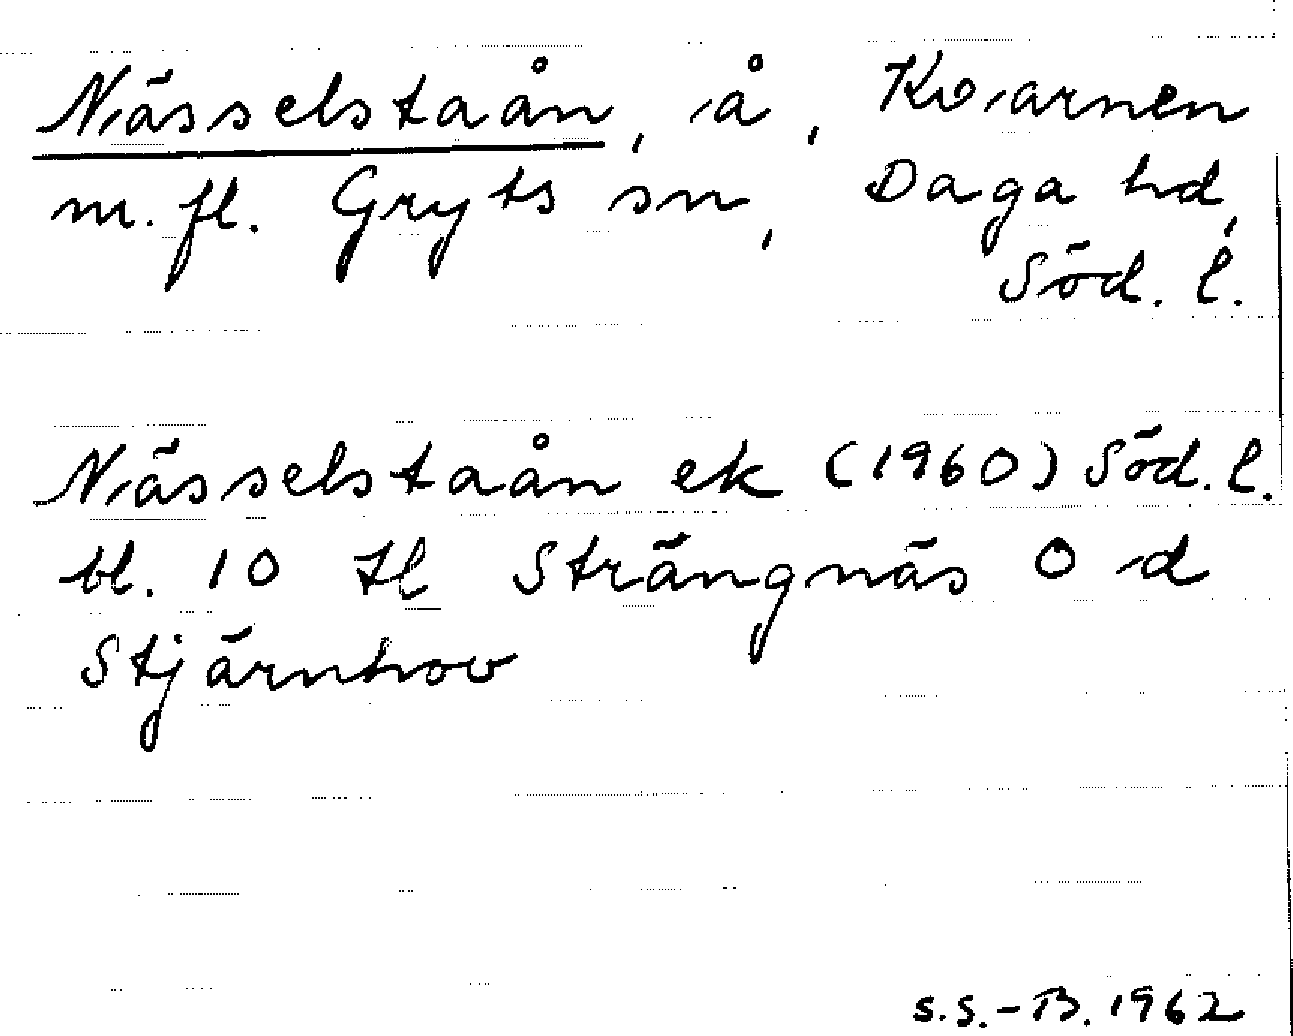 Nässelstaån, å, Kvarnen
m. fl. Gryts sn, Daga hd,
Söd. l.
Nässelstaån ek (1960) Söd. l.
bl. 10 tl Strängnäs O d
Stjärnhov
S.S.-B. 1962